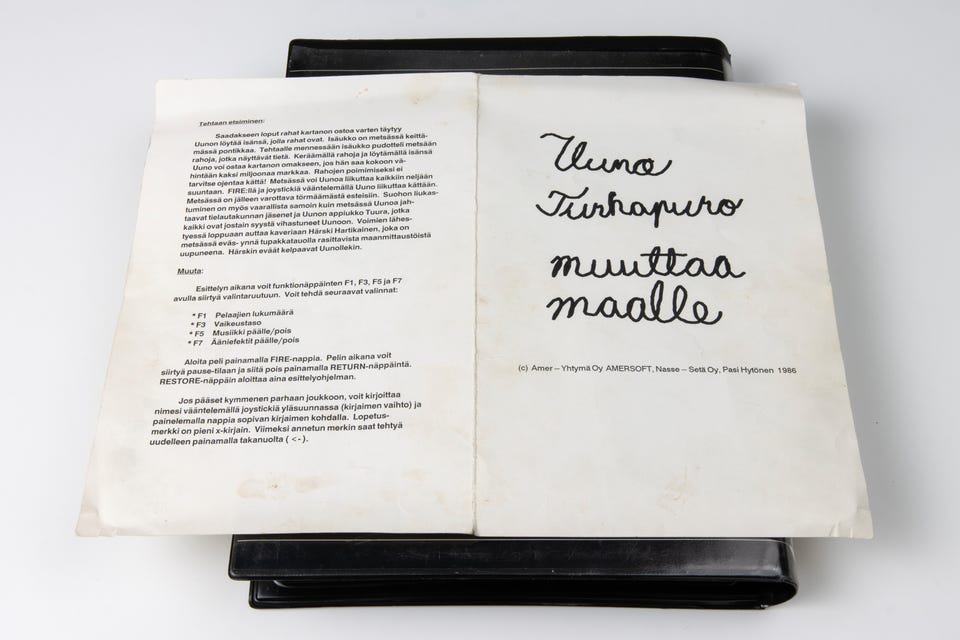 Tehtaan etsiminen:
Saadakseen loput rahat kartanon ostoa varten täytyy
Uunon löytää isänsä, jolla rahat ovat. Isäukko on metsässä keittä-
mässä pontikkaa. Tehtaalle mennessään isäukko pudotteli metsään
rahoja, jotka näyttävät tietä. Keräämällä rahoja ja löytämällä isänsä
Uuno voi ostaa kartanon omakseen, jos hän saa kokoon vä-
hintään kaksi miljoonaa markkaa. Rahojen poimimiseksi ei
tarvitse ojentaa kättä! Metsässä voi Uunoa liikuttaa kaikkiin neljään
suuntaan. FIRE:llä ja joystickiä vääntelemällä Uuno liikuttaa kättään.
Metsässä on jälleen varottava törmäämästä esteisiin. Suohon liukas-
tuminen on myös vaarallista samoin kuin metsässä Uunoa jah-
taavat tielautakunnan jäsenet ja Uunon appiukko Tuura, jotka
kaikki ovat jostain syystä vihastuneet Uunoon. Voimien lähes-
tyessä loppuaan auttaa kaveriaan Härski Hartikainen, joka on
metsässä eväs- ynnä tupakkatauolla rasittavista maanmittaustöistä
uupuneena. Härskin eväät kelpaavat Uunollekin.
Muuta:
Esittelyn aikana voit funktionäppäinten F1, F3, F5 ja F7
avulla siirtyä valintaruutuun. Voit tehdä seuraavat valinnat:
* F1 Pelaajien lukumäärä
* F3 Vaikeustaso
* F5 Musiikki päälle/pois
* F7 Ääniefektit päälle/pois
Aloita peli painamalla FIRE-nappia. Pelin aikana voit
siirtyä pause-tilaan ja siitä pois painamalla RETURN-näppäintä.
RESTORE-näppäin aloittaa aina esittelyohjelman.
Jos pääset kymmenen parhaan joukkoon, voit kirjoittaa
nimesi vääntelemällä joystickiä yläsuunnassa (kirjaimen vaihto) ja
painelemalla nappia sopivan kirjaimen kohdalla. Lopetus-
merkki on pieni x-kirjain. Viimeksi annetun merkin saat tehtyä
uudelleen painamalla takanuolta ( <- ).
Uuno
Turhapuro
muuttaa
maalle
(c) Amer – Yhtymä Oy AMERSOFT, Nasse – Setä Oy, Pasi Hytönen 1986